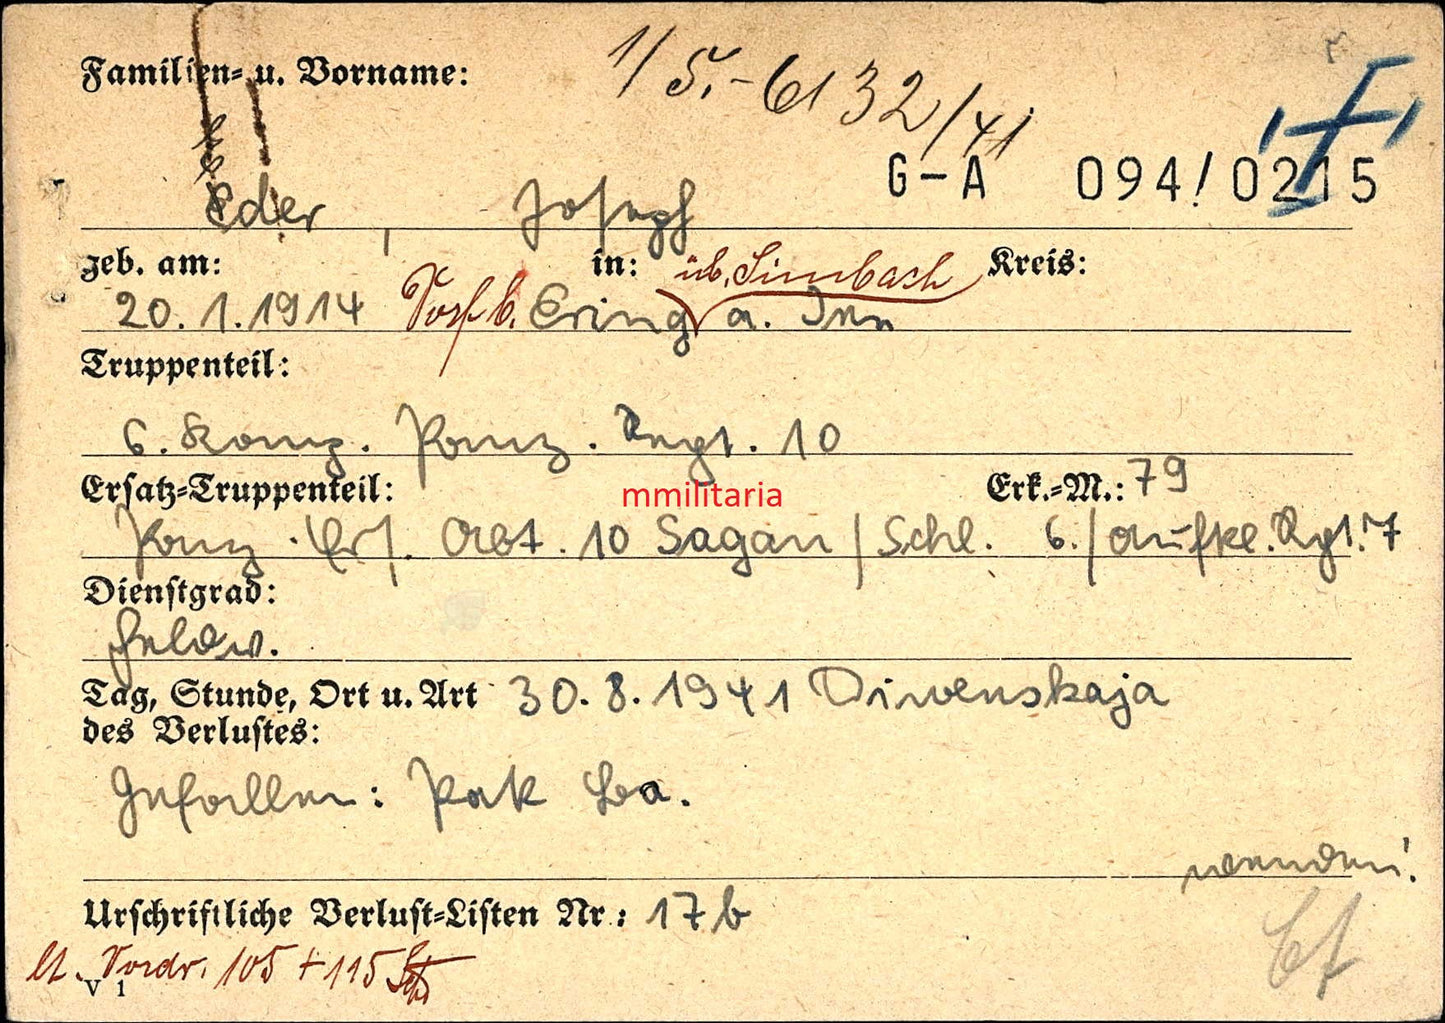 Familien- u. Vorname:
1/5.-6132/41
G-A 094/0215
Eder, Joseph
geb. am: in: üb. Simbach Kreis:
20.1.1914 b. Ering a. Inn
Truppenteil:
6. Komp. Panz. Regt. 10
Ersatz-Truppenteil: mmilitaria Erk.-M.: 79
Panz. Ers. Abt. 10 Sagan / Schl. 6./Aufkl. Rgt. 7
Dienstgrad:
Feldw.
Tag, Stunde, Ort u. Art 30.8.1941 Diwenskaja
des Verlustes:
Gefallen: Pak
wenden!
Urschriftliche Verlust-Listen Nr: 17b
lt. Vordr. 105 + 115
V 1